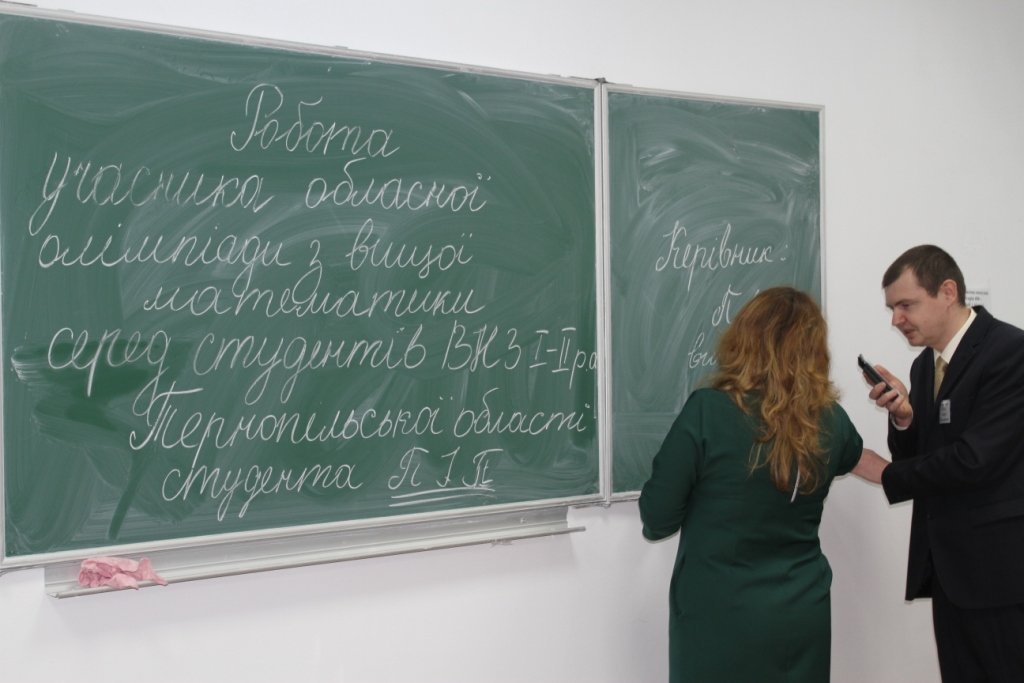 Робота
учасника обласної
олімпіади з вищої
математики
серед студентів ВНЗ I-II р.а
Тернопільської області
студента П І П
Керівник: